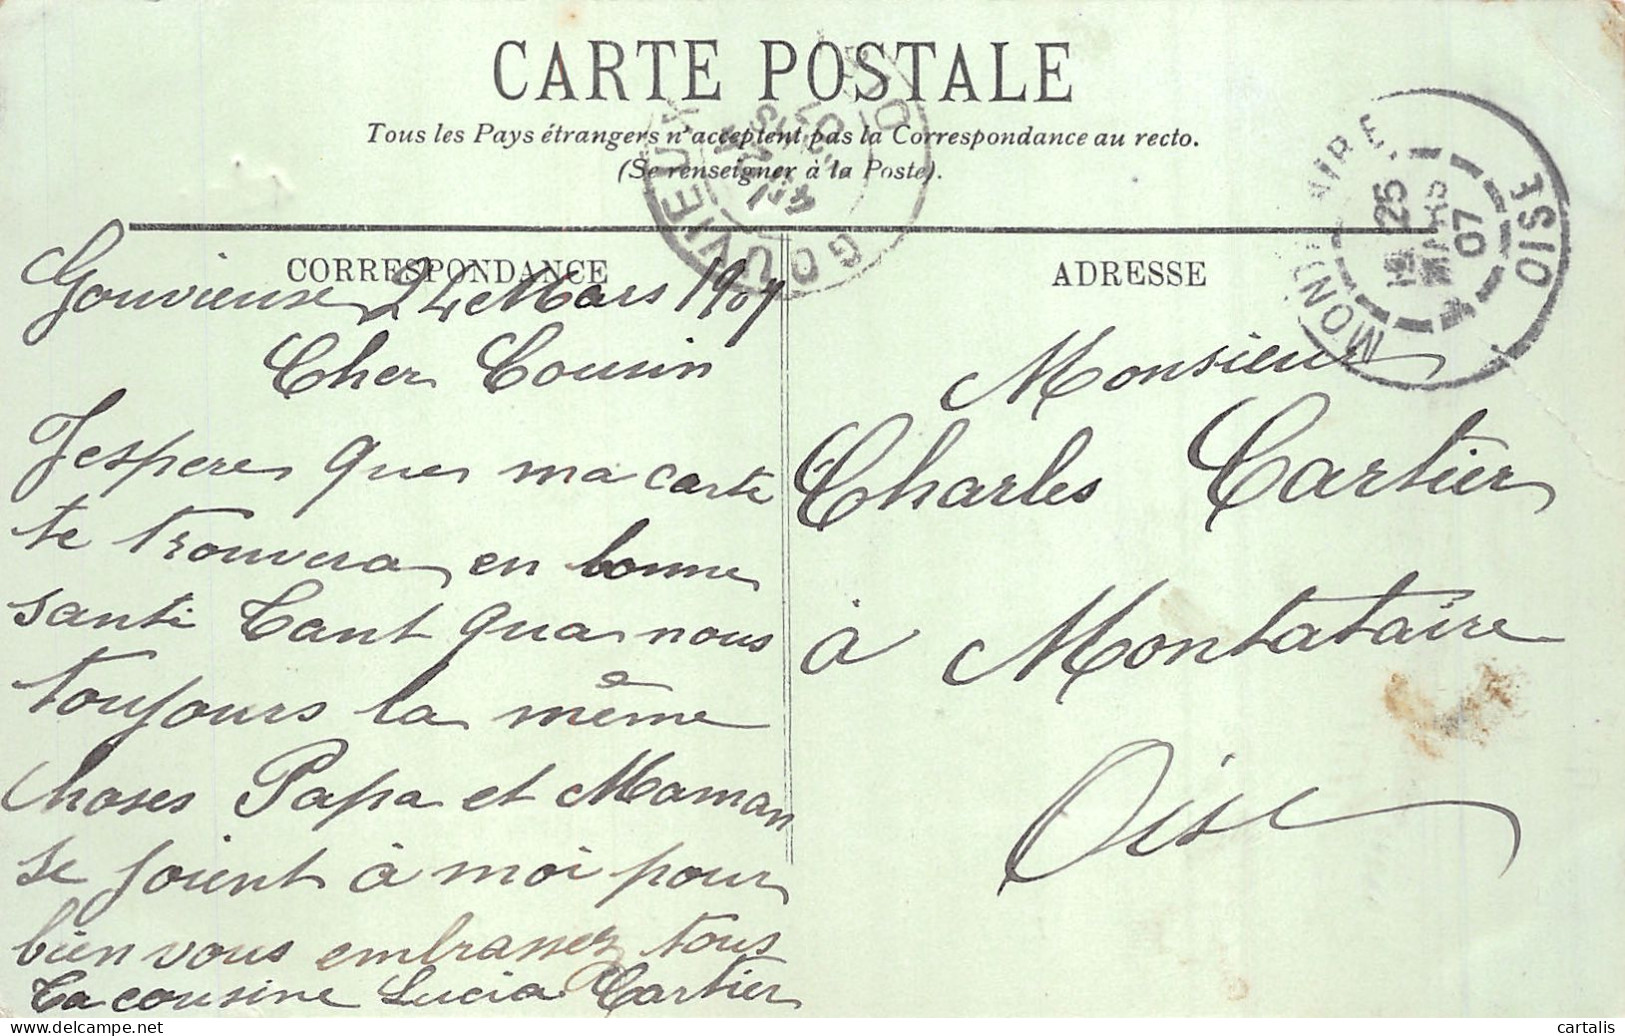 CARTE POSTALE
Tous les Pays étrangers n'acceptent pas la Correspondance au recto.
(Se renseigner à la Poste).
GOUVIEUX
OISE
MONTATAIRE
OISE
25
MARS
07
CORRESPONDANCE
ADRESSE
Gouvieuse 24 Mars 1907
Cher Cousin
J'espere que ma carte
te trouvera en bonne
santé Tant qua nous
toujours la même
choses Papa et Maman
se joient à moi pour
bien vous embrassez tous
Ta cousine Lucia Cartier
Monsieur
Charles Cartier
à Montataire
Oise
cartalis
delcampe.net